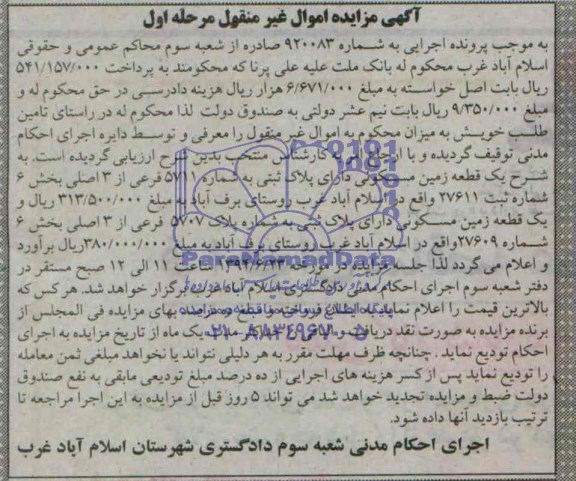 آگهی مزایده اموال غیر منقول مرحله اول
به موجب پرونده اجرایی به شماره ۹۲۰۰۸۳ صادره از شعبه سوم محاکم عمومی و حقوقی
اسلام آباد غرب محکوم له بانک ملت علیه علی پرنا که محکومند به پرداخت ۵۴۱/۱۵۷/۰۰۰
ریال بابت اصل خواسته به مبلغ ۶/۶۷۱/۰۰۰ هزار ریال هزینه دادرسی در حق محکوم له و
مبلغ ۹/۳۵۰/۰۰۰ ریال بابت نیم عشر دولتی به صندوق دولت لذا محکوم له در راستای تامین
طلب خویش به میزان محکوم به اموال غیر منقول را معرفی و توسط دایره اجرای احکام
مدنی توقیف گردیده و با ارجاع امر به کارشناس منتخب بدین شرح ارزیابی گردیده است. به
شرح یک قطعه زمین مسکونی دارای پلاک ثبتی به شماره ۵۷۱۱ فرعی از ۳ اصلی بخش ۶
شماره ثبت ۲۷۶۱۱ واقع در اسلام آباد غرب روستای برف آباد به مبلغ ۳۱۳/۵۰۰/۰۰۰ ریال و
یک قطعه زمین مسکونی دارای پلاک ثبتی به شماره پلاک ۵۷۰۷ فرعی از ۳ اصلی بخش ۶
شماره ۲۷۶۰۹واقع در اسلام آباد غرب روستای برف آباد به مبلغ ۳۸۰/۰۰۰/۰۰۰ریال برآورد
ParsNamadData
و اعلام می گردد لذا جلسه مزایده در مورخه ۱۳۹۴/۶/۲۳ ساعت ۱۱ الی ۱۲ صبح مستقر در
دفتر شعبه سوم اجرای احکام مدنی دادگستری اسلام آباد غرب برگزار خواهد شد. هر کس که
بالاترین قیمت را اعلام نماید به فروخته و ده درصد بهای مزایده فی المجلس از
برنده مزایده به صورت نقد دریافت و مدت یک ماه از تاریخ مزایده به اجرای
۰۲۱-۸۸۳۴۹۶۷۰-۵
احکام تودیع نماید . چنانچه ظرف مهلت مقرر به هر دلیلی نتواند یا نخواهد مبلغی ثمن معامله
را تودیع نماید پس از کسر هزینه های اجرایی از ده درصد مبلغ تودیعی مابقی به نفع صندوق
دولت ضبط و مزایده تجدید خواهد شد می تواند ۵ روز قبل از مزایده به این اجرا مراجعه تا
ترتیب بازدید آنها داده شود.
اجرای احکام مدنی شعبه سوم دادگستری شهرستان اسلام آباد غرب